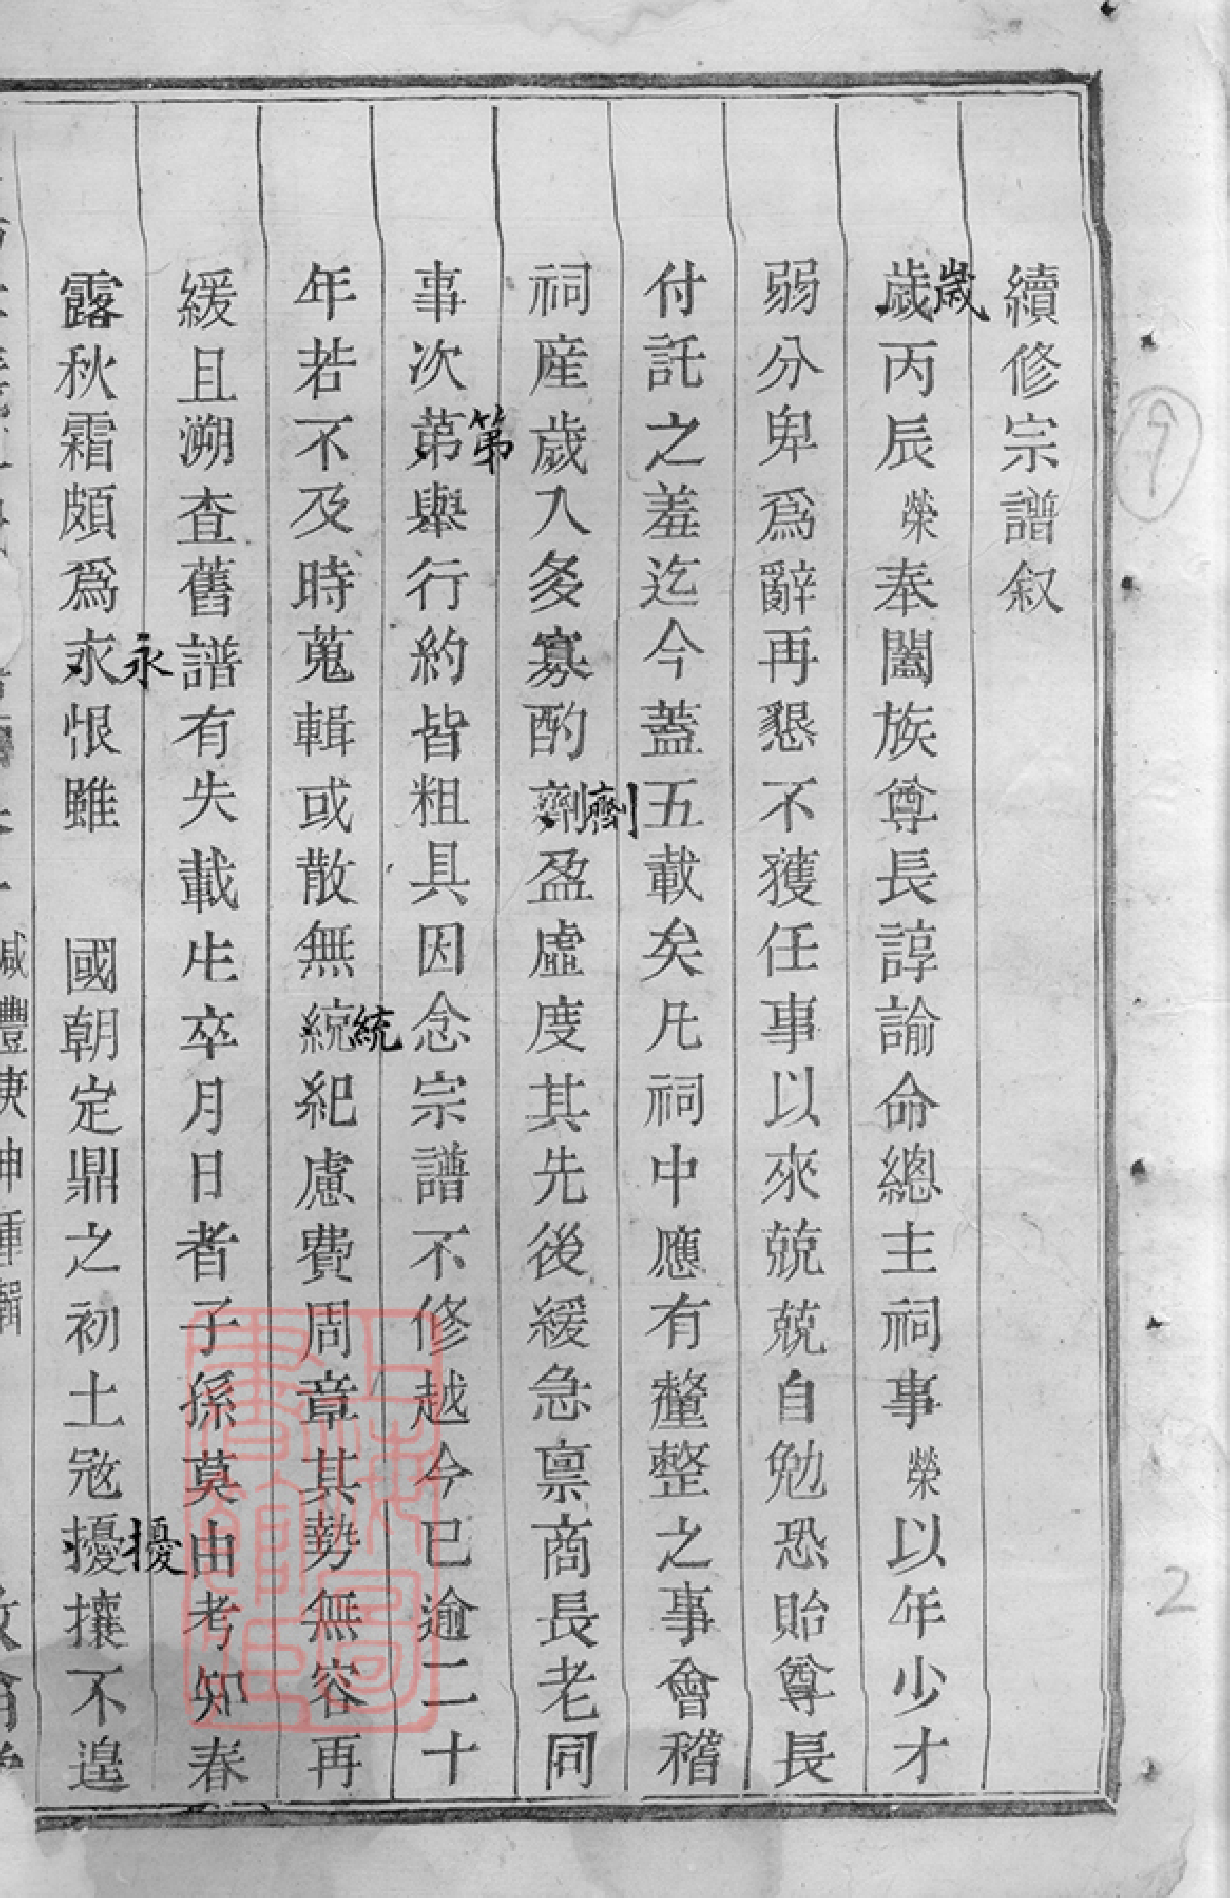 續修宗譜叙
歲歲丙辰榮奉闔族尊長諄諭命總主祠事榮以年少才
弱分卑爲辭再懇不獲任事以來兢兢自勉恐貽尊長
付託之羞迄今蓋五載矣凡祠中應有釐整之事會稽
祠産歲入多寡酌劑劑盈虛度其先後緩急禀商長老同
事次第第舉行約皆粗具因念宗譜不修越今已逾二十
年若不及時蒐輯或散無統統紀慮費周章其勢無容再
緩且溯查舊譜有失載生卒月日者子孫莫由考知春
露秋霜頗爲永永恨雖 國朝定鼎之初土寇擾擾攘不遑
咸豐庚申重輯
上海圖書館藏
9
2